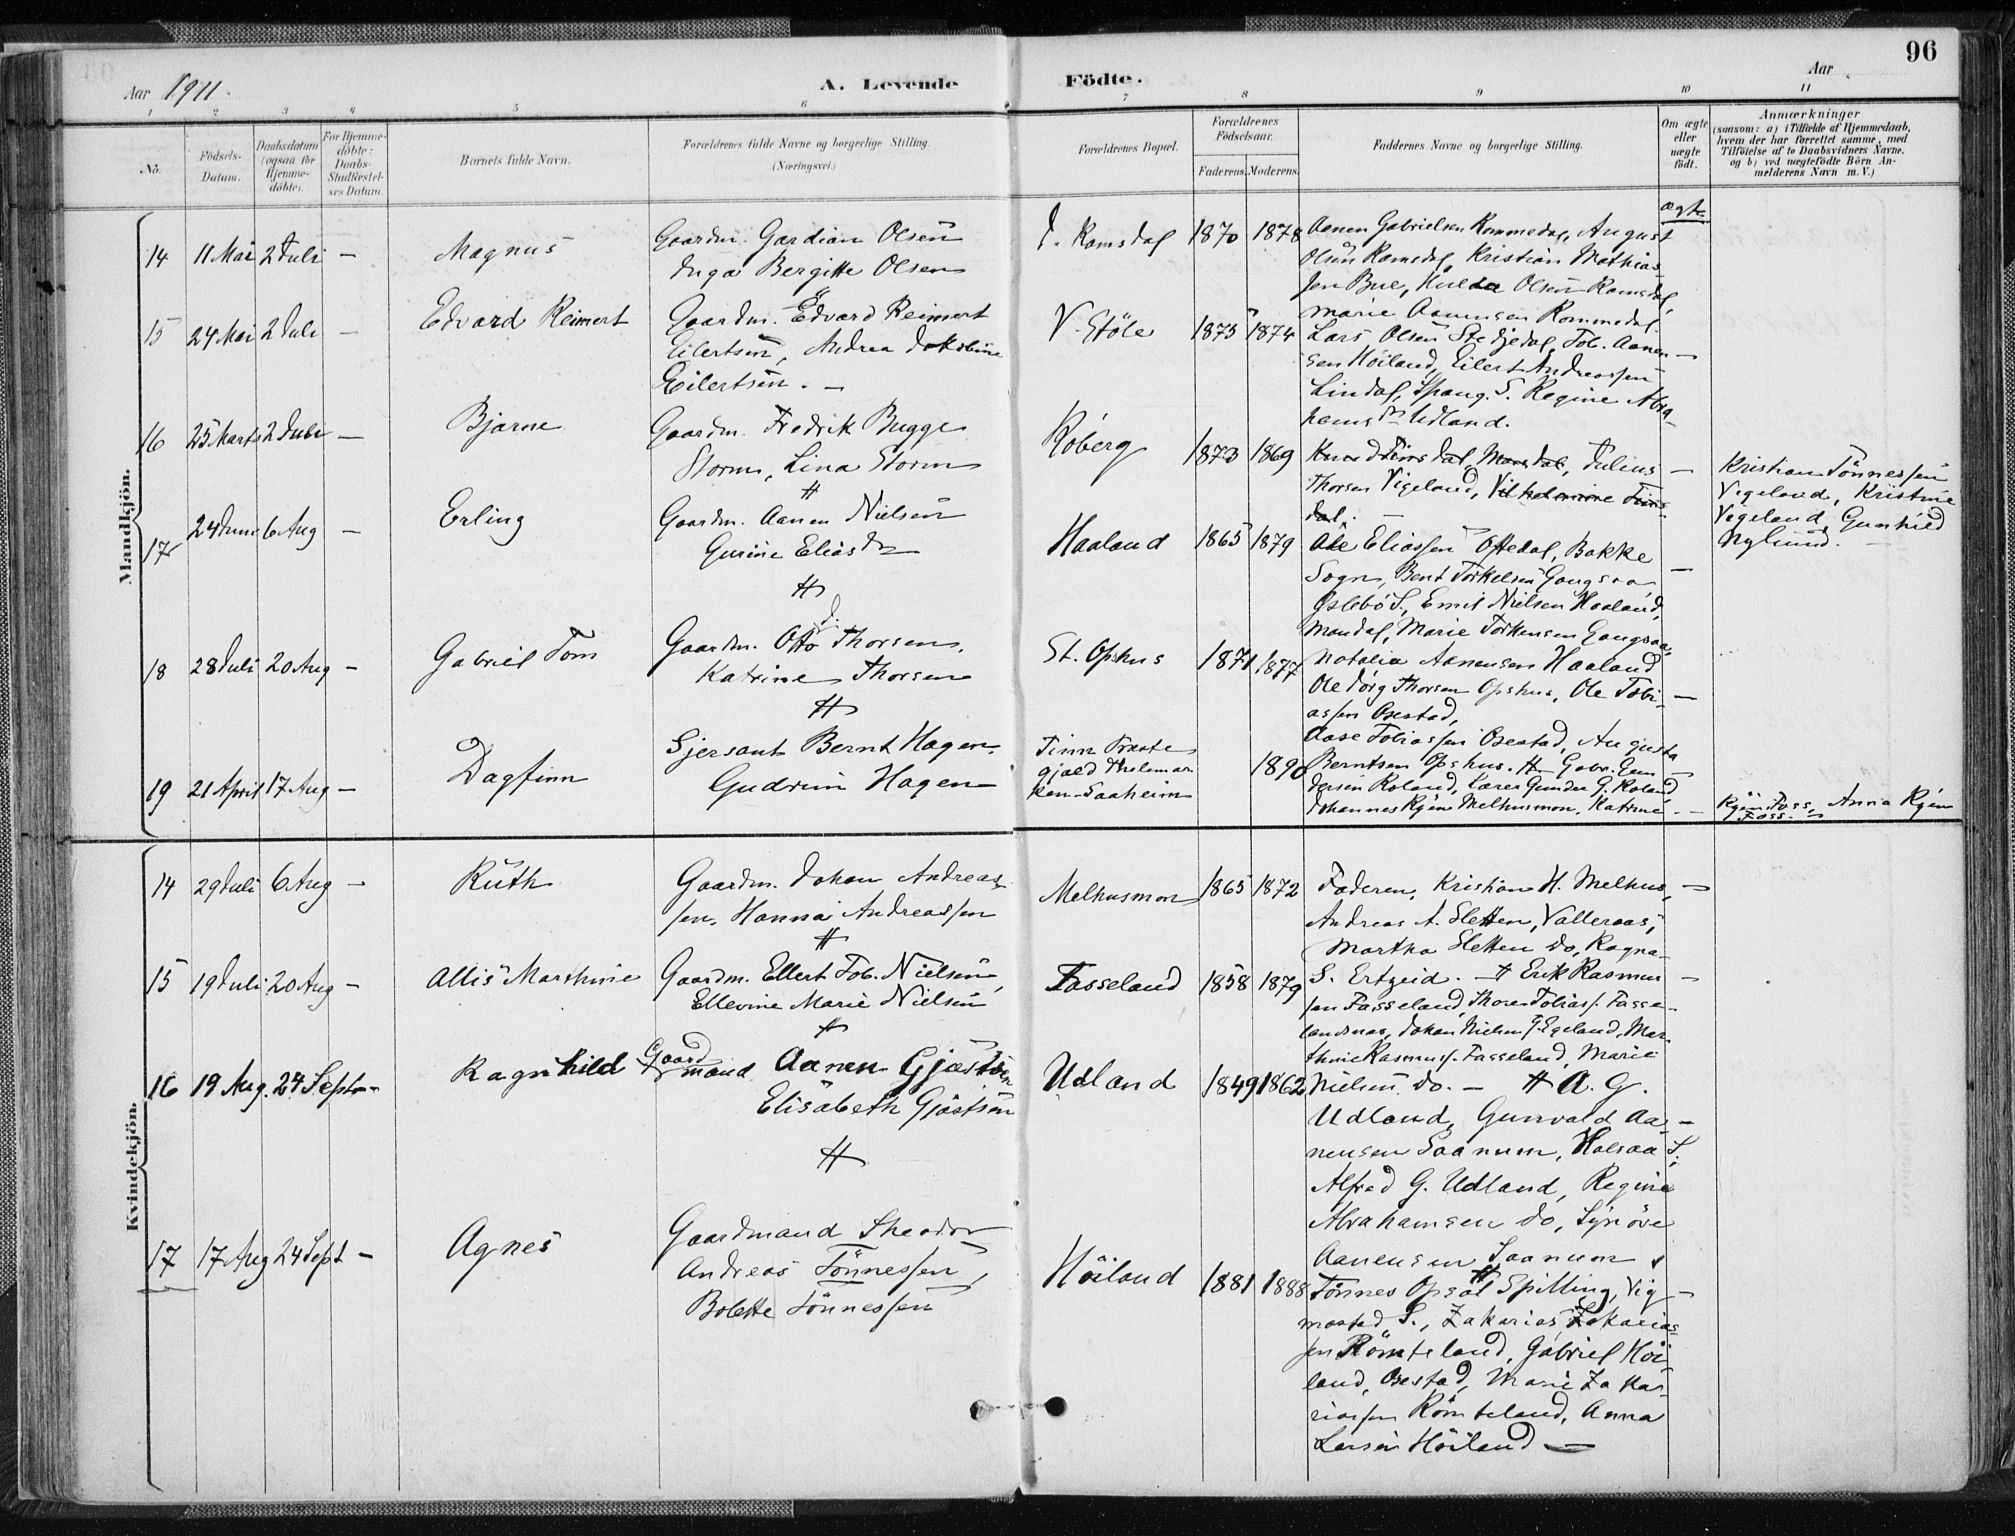 96
Aar 1911.
A. Levende Födte.
Aar
1 2 3 4 5 6 7 8 9 10 11
No.
Födsels-Datum.
Daabsdatum (ogsaa for Hjemme-döbte).
For Hjemme-döbte: Daabs-Stadfæstel-ses Datum.
Barnets fulde Navn.
Forældrenes fulde Navne og borgerlige Stilling. (Næringsvei.)
Forældrenes Bopæl.
Forældrenes Födselsaar.
Faderens. Moderens.
Faddernes Navne og borgerlige Stilling.
Om ægte eller uægte födt.
Anmærkninger
(saasom: a) i Tilfælde af Hjemmedaab,
hvem der har forrettet samme, med
Tilföielse af to Daabsvidners Navne,
og b) ved uægtefödte Börn An-
melderens Navn m. V.)
Mandkjön.
ægte
14 11 Mai 2 Juli - Magnus
Gaardm. Gardian Olsen
Inga Bergitte Olsen
Y. Ramsdal 1870 1878
Aanen Gabrielsen Rommedal, August
Olsen Ramsdal, Kristian Mathias-
sen Bue, Hulda Olsen Ramsdal,
Marie Aanensen Rommedal.
15 24 Mai 2 Juli - Edvard Reimert
Gaardm. Edvard Reimert
Eilertsen, Andrea Jakobine
Eilertsen. -
V. Stöle 1875 1874
Lars Olsen Stedjedal, Tob. Aanen-
sen Höiland, Eilert Andreassen
Lindal, Spang. S. Regine Abra-
hams dr Udland.
16 25 Marts 2 Juli - Bjarne
Gaardm. Fredrik Bugge
Storm, Lina Storm
Röberg 1873 1869
Julius
Thorsen Vigeland, Vilhelmine Fins-
dal.
Kristian Tönnessen
Vigeland, Kristine
Vigeland, Gunhild
Nylund.
17 24 Juni 6 Aug - Erling
Gaardm. Aanen Nielsen
Gurine Elias dr
Haaland 1865 1879
Ole Eliassen Oftedal, Bakke
Sogn, Bent Torkelsen Gangsaa
Öslebö S., Emil Nielsen Haaland,
Mandal, Marie Torkensen Gangsaa,
Natalia Aanensen Haaland
18 28 Juli 20 Aug - Gabriel Tom
Gaardm. Otto J. Thorsen,
Katrine Thorsen
St. Opshus 1871 1877
Ole Jörg Thorsen Opshus, Ole Tobi-
assen Osestad,
Aase Tobiassen Osestad, Augusta
Berntsen Opshus.
19 21 April 17 Aug - Dagfinn
Sjersant Bernt Hagen.
Gudrun Hagen
Tinn Præste
gjæld Thelemar
ken - Saaheim
1890
Gabr. Gun-
dersen Roland, Karen Gunder G. Roland
Johannes Ryen Melhusmon, Katrine
Ryen Foss, Anna Ryen
Foss.
Kvindekjön.
14 29 Juli 6 Aug - Ruth
Gaardm. Johan Andreas-
sen, Hanna Andreassen
Melhusmon 1865 1872
Faderen, Kristian H. Melhus,
Andreas A. Sletten, Valleraas,
Martha Sletten do, Ragna
S. Ertzeid.
15 19 Juli 20 Aug - Allis Marthine
Gaardm. Ellert Tob. Nielsen,
Ellevine Marie Nielsen
Fasseland 1858 1879
Erik Rasmus-
sen Fasseland, Thore Tobiass. Fasse-
landsnes, Johan Nielsen Egeland, Mar-
thine Rasmuss. Fasseland, Marie
Nielsen do. -
16 19 Aug. 24 Septr - Ragnhild
Gaardmand Aanen Gjæstsen
Elisabeth Gjæstsen
Udland 1849 1862
A. G.
Udland, Gunvald Aa-
nensen Saanum, Halsaa S.,
Alfred G. Udland, Regine
Abrahamsen do, Synöve
Aanensen Saanum
17 17 Aug 24 Sept - Agnes
Gaardmand Theodor
Andreas Tönnessen,
Bolette Tönnessen
Höiland 1881 1888
Tönnes Opsal Spilling, Vig-
mostad S., Zakarias Zakarias-
sen Römteland, Gabriel Höi-
land, Osestad, Marie Zaka-
riassen Römteland, Anna
Larsen Höiland